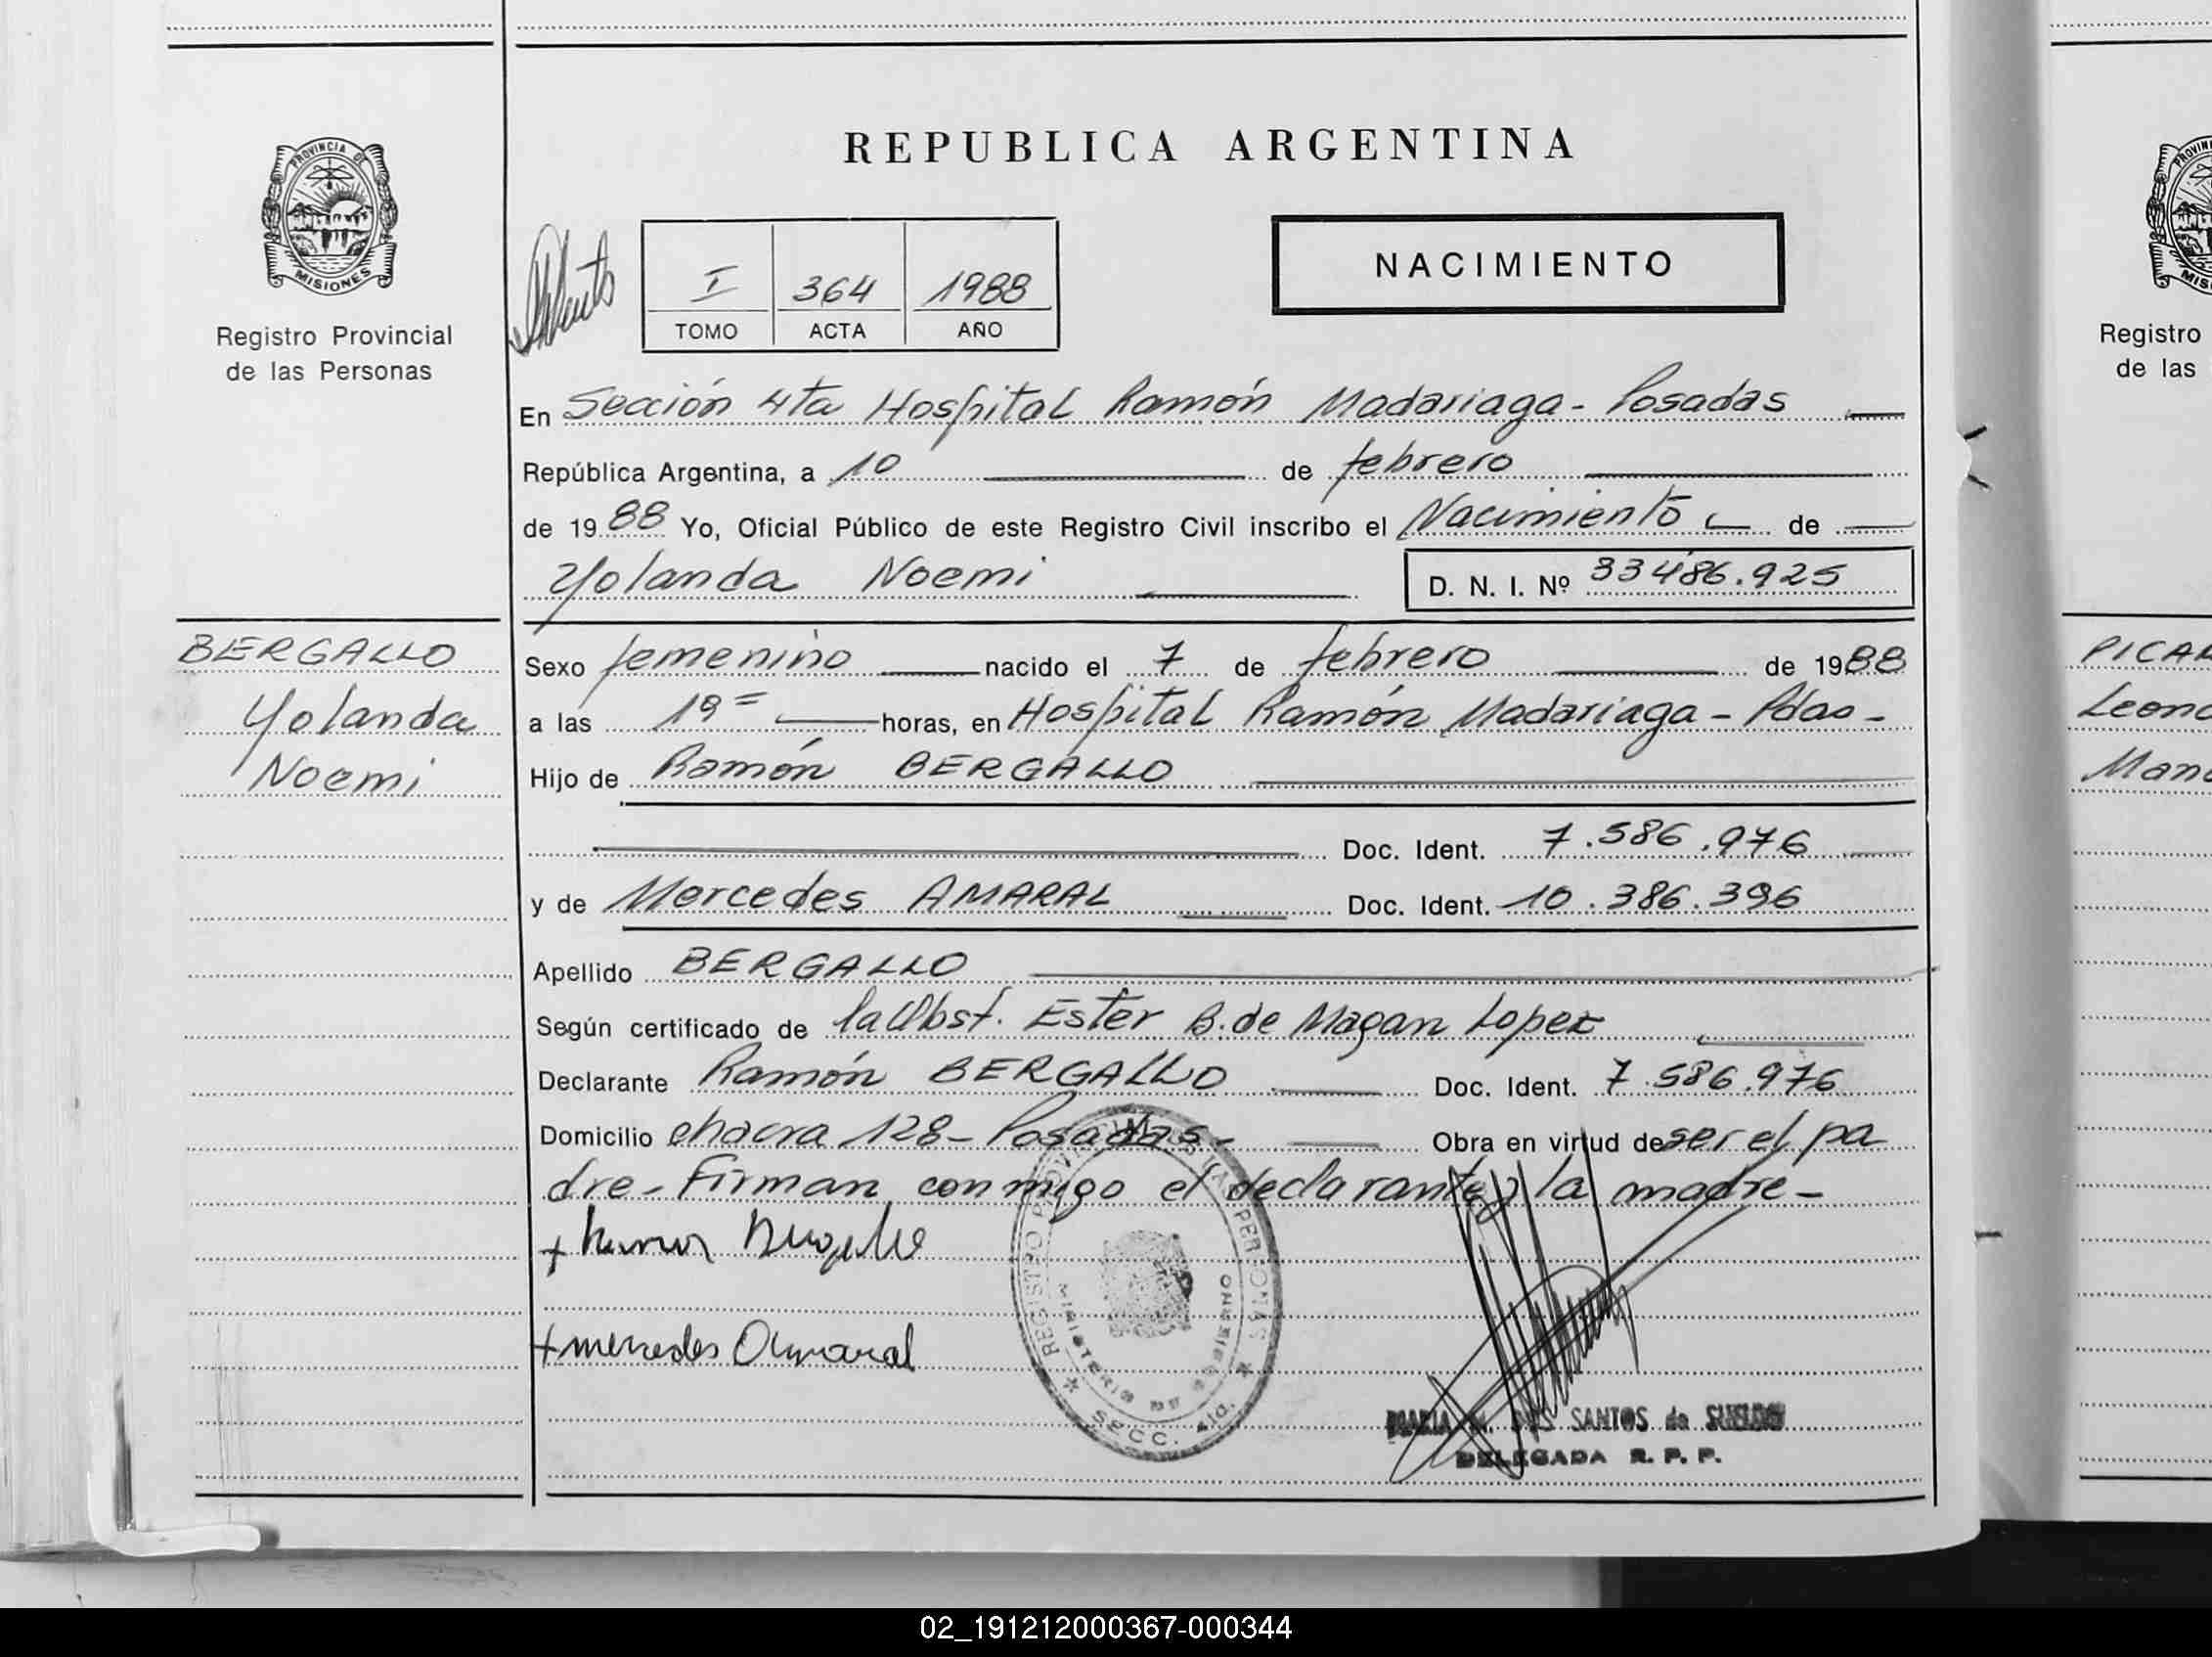 REPUBLICA ARGENTINA
PROVINCIA DE
MISIONES
Registro Provincial
de las Personas
I 364 1988
TOMO ACTA AÑO
NACIMIENTO
En Sección 4ta Hospital Ramón Madariaga - Posadas
República Argentina, a 10 de febrero
de 1988 Yo, Oficial Público de este Registro Civil inscribo el Nacimiento de
Yolanda Noemi D. N. I. Nº 33486.925
BERGALLO
Yolanda
Noemi
Sexo femenino nacido el 7 de febrero de 1988
a las 19= horas, en Hospital Ramón Madariaga - Pdas -
Hijo de Ramón BERGALLO
Doc. Ident. 7.586.976
y de Mercedes AMARAL Doc. Ident. 10.386.396
Apellido BERGALLO
Según certificado de la Obst. Ester B. de Magan Lopez
Declarante Ramón BERGALLO Doc. Ident. 7.586.976
Domicilio chacra 128 - Posadas - Obra en virtud de ser el pa
dre - Firman conmigo el declarante y la madre -
+ Ramon Bergallo
+ mercedes Amaral
REGISTRO PROVINCIAL DE LAS PERSONAS
MINISTERIO DE GOBIERNO
SECC. 4ta.
MARIA DOS SANTOS de
DELEGADA R. P. P.
Registro
de las
PICA
Leon
Man
02_191212000367-000344